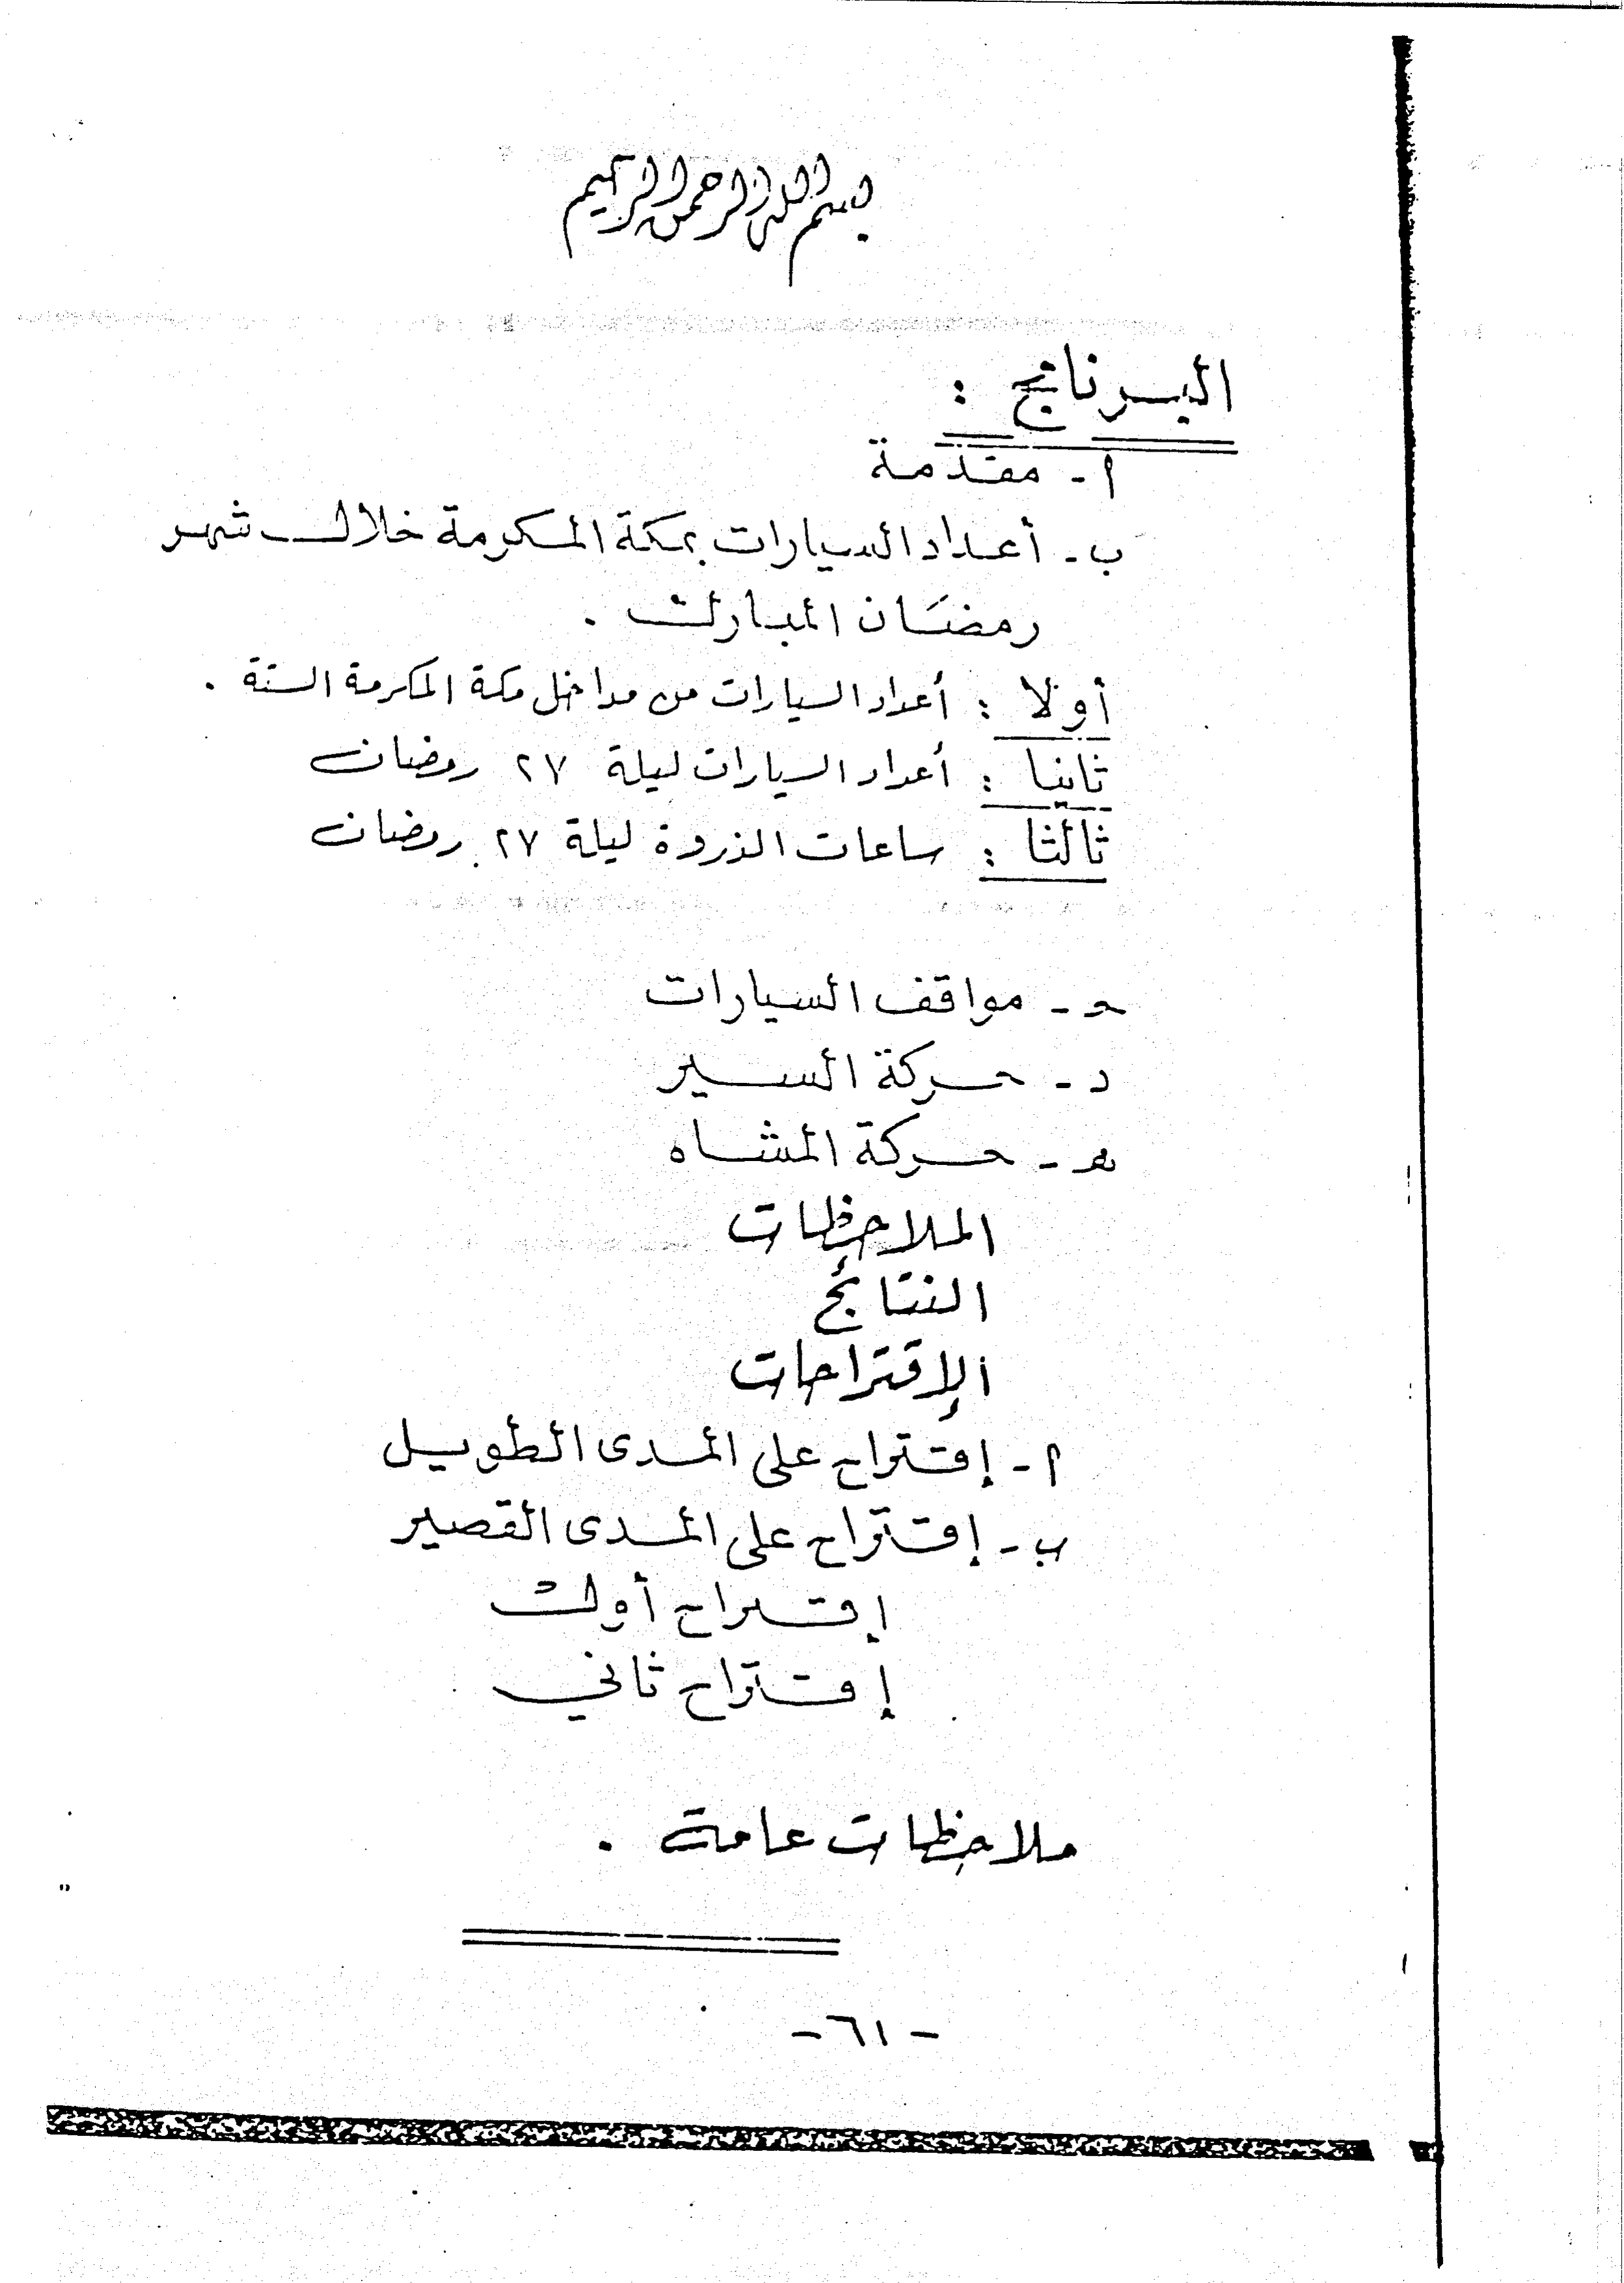 بسم الله الرحمن الرحيم
البرنامج :
أ - مقدمة
ب - أعداد السيارات بمكة المكرمة خلال شهر
رمضان المبارك .
أولا : أعداد السيارات من مداخل مكة المكرمة الستة .
ثانيا : أعداد السيارات ليلة ٢٧ رمضان
ثالثا : ساعات الذروة ليلة ٢٧ رمضان
حـ - مواقف السيارات
د - حركة السير
هـ - حركة المشاه
الملاحظات
النتائج
الإقتراحات
أ - إقتراح على المدى الطويل
ب - إقتراح على المدى القصير
إقتراح أول
إقتراح ثاني
ملاحظات عامة .
- ٦١ -